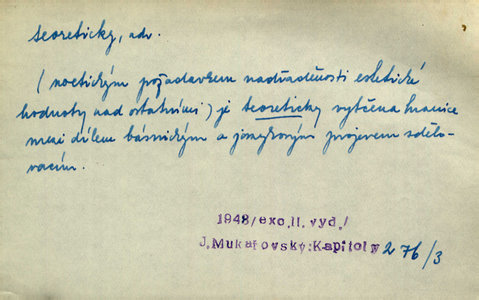 teoreticky, adv.
(noetickým požadavkem nadřáděnosti estetické
hodnoty nad ostatními) je teoreticky vytčena hranice
mezi dílem básnickým a jazykovým projevem sdělo-
vacím.
1948/exc.II.vyd./
J.Mukařovský:Kapitoly 276/3